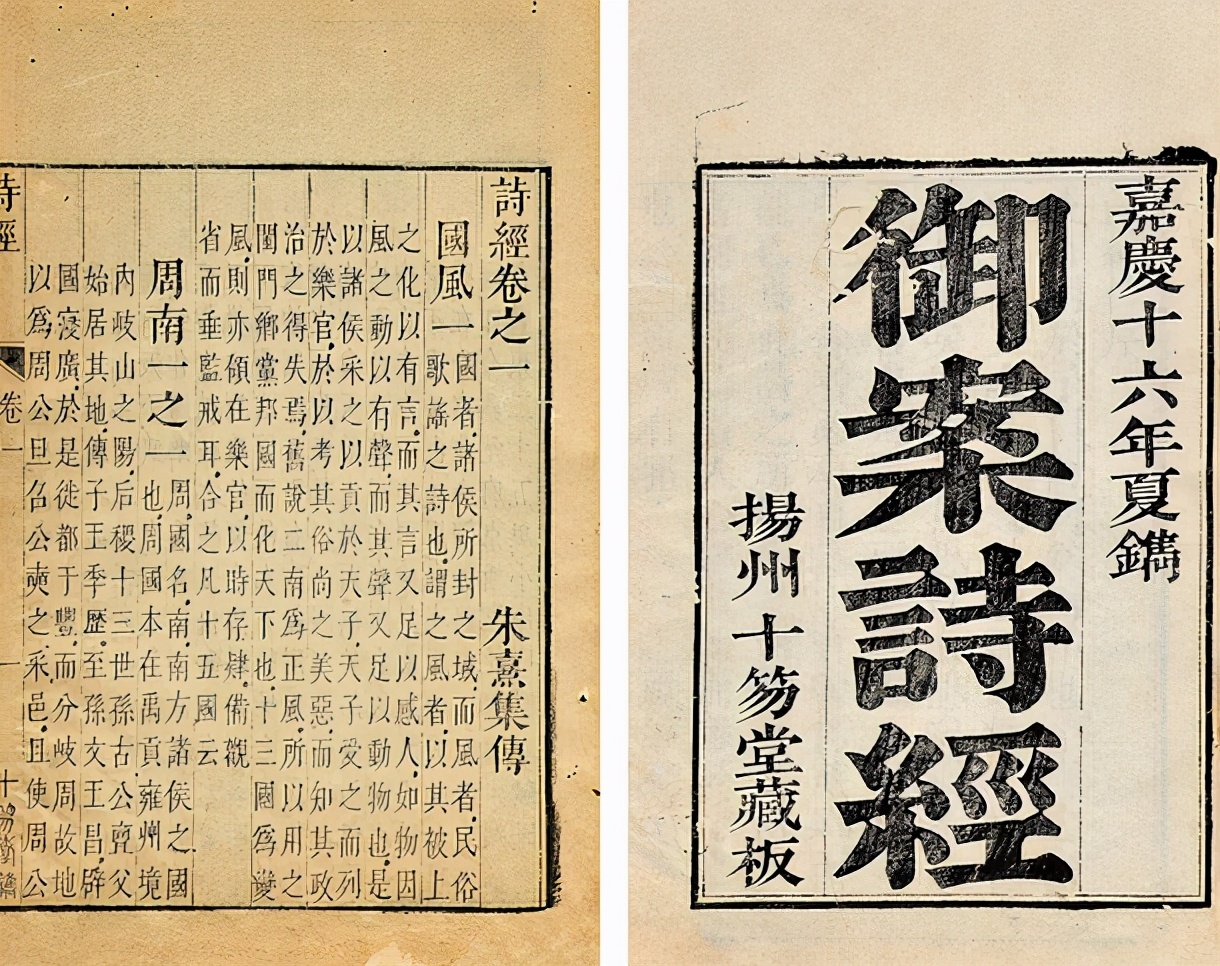 嘉慶十六年夏鐫
御案詩經
揚州十笏堂藏板
詩經卷之一 朱熹集傳
國風一 國者諸侯所封之域而風者民俗
歌謠之詩也謂之風者以其被上
之化以有言而其言又足以感人如物因
風之動以有聲而其聲又足以動物也是
以諸侯采之以貢於天子天子受之而列
於樂官於以考其俗尚之美惡而知其政
治之得失焉舊說二南爲正風所以用之
閨門鄉黨邦國而化天下也十三國爲變
風則亦領在樂官以時存肄備觀
省而垂監戒耳合之凡十五國云
周南一之一 周國名南南方諸侯之國
也周國本在禹貢雍州境
內岐山之陽后稷十三世孫古公亶父
始居其地傳子王季歷至孫文王昌辟
國寖廣於是徙都于豐而分岐周故地
以爲周公旦召公奭之采邑且使周公
詩經 卷一 一 十笏堂